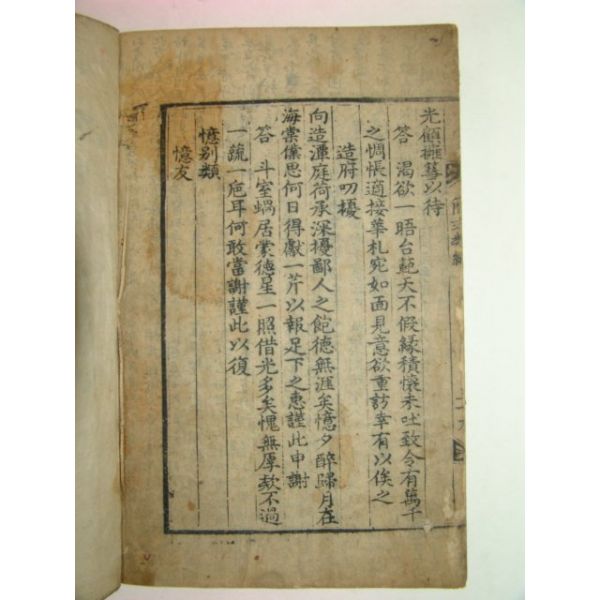 光顧擁篲以待
答　渴欲一晤台範天不假緣積懷未吐致令有萬千
之惆悵適接華札宛如面見意欲重訪幸有以俟之
造府叨擾
向造潭庭荷承深擾鄙人之飽德無涯矣憶夕醉歸月在
海棠儻思何日得獻一芹以報足下之惠謹此申謝
答　斗室蝸居蒙德星一照借光多矣愧無厚款不過
一蔬一卮耳何敢當謝謹此以復
憶別類
憶友